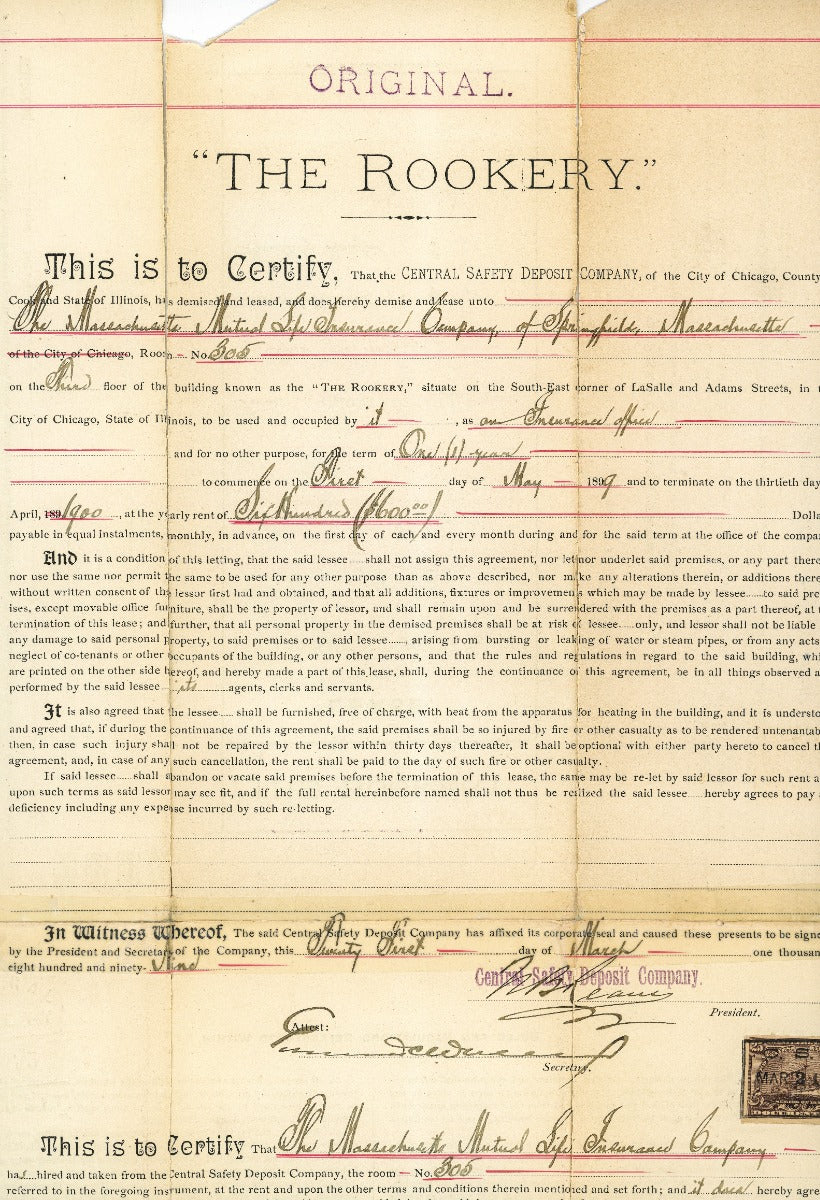 ORIGINAL.
"THE ROOKERY."
This is to Certify, That the CENTRAL SAFETY DEPOSIT COMPANY, of the City of Chicago, County
Cook and State of Illinois, has demised and leased, and does hereby demise and lease unto
The Massachusetts Mutual Life Insurance Company, of Springfield, Massachusetts
of the City of Chicago, Room No. 305
on the Third floor of the building known as the "THE ROOKERY," situate on the South-East corner of LaSalle and Adams Streets, in t
City of Chicago, State of Illinois, to be used and occupied by it, as an Insurance office
and for no other purpose, for the term of One (1) year
to commence on the First day of May 1899 and to terminate on the thirtieth day
April, 189 1900, at the yearly rent of Six Hundred ($600.00) Dolla
payable in equal instalments, monthly, in advance, on the first day of each and every month during and for the said term at the office of the compa
And it is a condition of this letting, that the said lessee.....shall not assign this agreement, nor let nor underlet said premises, or any part there
nor use the same nor permit the same to be used for any other purpose than as above described, nor make any alterations therein, or additions there
without written consent of the lessor first had and obtained, and that all additions, fixtures or improvements which may be made by lessee......to said pre
ises, except movable office furniture, shall be the property of lessor, and shall remain upon and be surrendered with the premises as a part thereof, at t
termination of this lease; and further, that all personal property in the demised premises shall be at risk of lessee.....only, and lessor shall not be liable
any damage to said personal property, to said premises or to said lessee......., arising from bursting or leaking of water or steam pipes, or from any acts
neglect of co-tenants or other occupants of the building, or any other persons, and that the rules and regulations in regard to the said building, whi
are printed on the other side hereof, and hereby made a part of this lease, shall, during the continuance of this agreement, be in all things observed a
performed by the said lessee its agents, clerks and servants.
It is also agreed that the lessee..... shall be furnished, free of charge, with heat from the apparatus for heating in the building, and it is understo
and agreed that, if during the continuance of this agreement, the said premises shall be so injured by fire or other casualty as to be rendered untenantab
then, in case such injury shall not be repaired by the lessor within thirty days thereafter, it shall be optional with either party hereto to cancel th
agreement, and, in case of any such cancellation, the rent shall be paid to the day of such fire or other casualty.
If said lessee......shall abandon or vacate said premises before the termination of this lease, the same may be re-let by said lessor for such rent a
upon such terms as said lessor may see fit, and if the full rental hereinbefore named shall not thus be realized the said lessee.....hereby agrees to pay
deficiency including any expense incurred by such re-letting.
In Witness Whereof, The said Central Safety Deposit Company has affixed its corporate seal and caused these presents to be signe
by the President and Secretary of the Company, this Twenty First day of March one thousan
eight hundred and ninety- Nine
Central Safety Deposit Company.
President.
Attest:
Secretary.
MAR 21
This is to Certify That The Massachusetts Mutual Life Insurance Company
has hired and taken from the Central Safety Deposit Company, the room No. 305
referred to in the foregoing instrument, at the rent and upon the other terms and conditions therein mentioned and set forth; and it does hereby agre